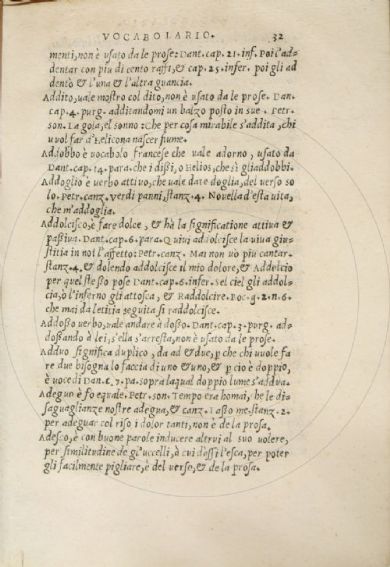 VOCABOLARIO. 32
menti, non è usato da le prose: Dant. cap. 21. inf. Poi l'ad=
dentar con piu di cento raffi, & cap. 25. infer. poi gli ad
dentò & l'una & l'altra guancia.
Addito, uale mostro col dito, non è usato da le prose. Dan.
cap. 4. purg. additandomi un balzo posto in sue. Petr=
son. La gola, el sonno: Che per cosa mirabile s'addita, chi
uuol far d'Helicona nascer fiume.
Addobbo è vocabolo francese che uale adorno, usato da
Dant. cap. 14. para. che i dißi, o Helios, che si gli addobbi.
Addoglio è uerbo attiuo, che uale date doglia, del uerso so
lo. Petr. canz. verdi panni, stanz. 4. Nouella d'esta uita,
che m'addoglia.
Addolcisco, è fare dolce, & hà la significatione attiua &
paßiua. Dant. cap. 6. para. Quiui addolcisce la uiua giu=
stitia in noi l'affetto: Petr. canz. Mai non uò piu cantar.
stanz. 4, & dolendo addolcisce il mio dolore, & Addolcio
per quel steßo pose Dant. cap. 6. infer. Se'l ciel gli addol=
cia, o l'inferno gli attosca, & Raddolcire. Boc. g. 2. n. 6.
che mai da letitia seguita si raddolcisce.
Addoßo uerbo, uale andare à doßo. Dant. cap. 3. purg. ad=
doßando à lei, s'ella s'arresta, non è usato da le prose.
Adduo significa duplico, da ad & due, p che chi uuole fa
re due bisogna lo faccia di uno & uno, & p ciò è doppio,
è uoce di Dan. c. 7. pa. sopra laqual doppio lume s'addua.
Adeguo è fo equale. Petr. son. Tempo era homai, he le di=
saguaglianze nostre adegua, & canz. Lasso me, stanz. 2.
per adeguar col riso i dolor tanti, non è de la prosa.
Adesco, è con buone parole inducere altrui al suo uolere,
per similitudine de gl'uccelli, à cui daßi l'esca, per poter
gli facilmente pigliare, è del uerso, & de la prosa.